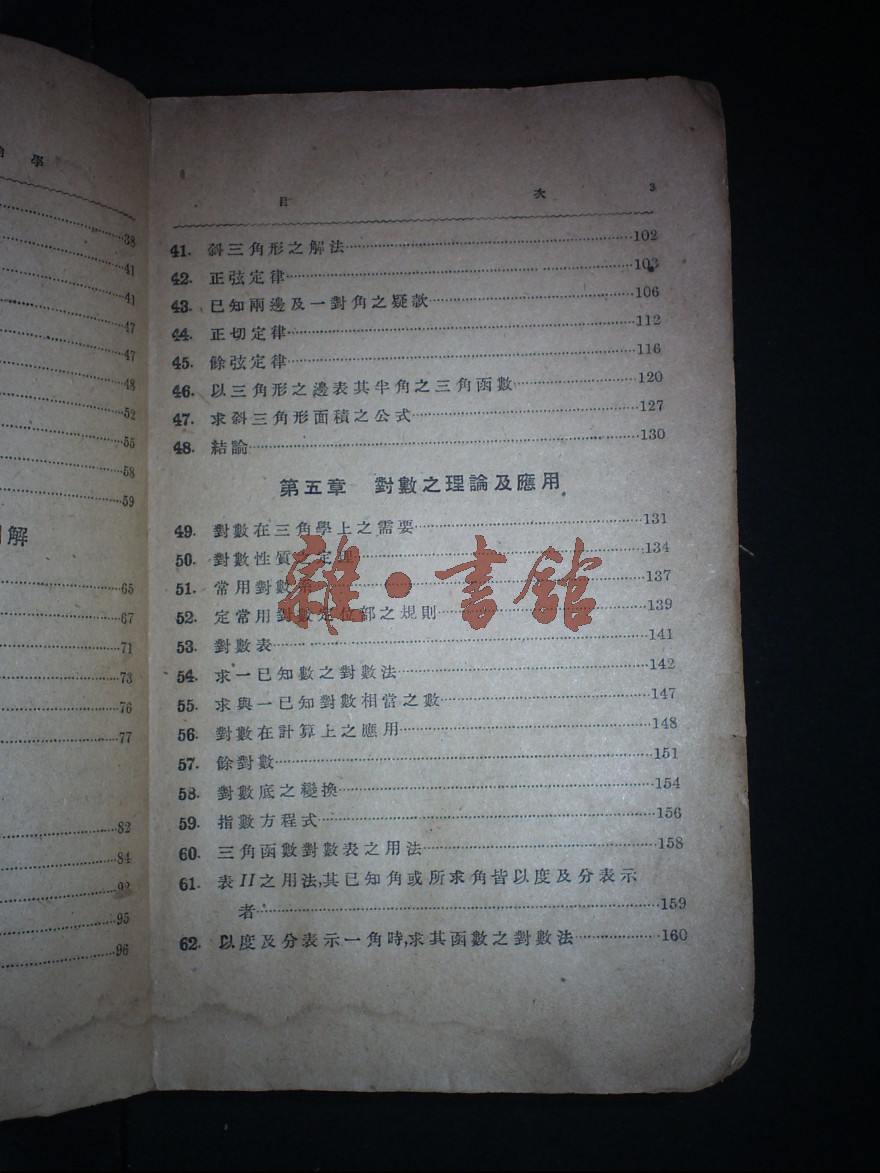 學
38
41
41
47
47
48
52
55
58
59
解
65
67
71
73
76
77
82
84
92
95
96
目 次 3
41. 斜三角形之解法 102
42. 正弦定律 103
43. 已知兩邊及一對角之疑款 106
44. 正切定律 112
45. 餘弦定律 116
46. 以三角形之邊表其半角之三角函數 120
47. 求斜三角形面積之公式 127
48. 結論 130
第五章 對數之理論及應用
49. 對數在三角學上之需要 131
50. 對數性質之定理 134
51. 常用對數 137
52. 定常用對數定位部之規則 139
53. 對數表 141
54. 求一已知數之對數法 142
55. 求與一已知對數相當之數 147
56. 對數在計算上之應用 148
57. 餘對數 151
58. 對數底之變換 154
59. 指數方程式 156
60. 三角函數對數表之用法 158
61. 表II之用法,其已知角或所求角皆以度及分表示
者 159
62. 以度及分表示一角時,求其函數之對數法 160
雜·書館